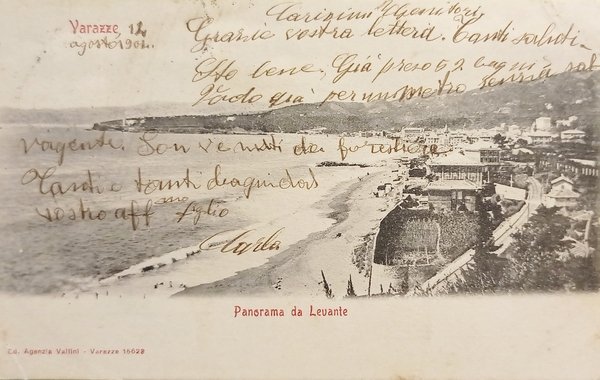 Varazze 12
agosto 1901.
Carissimi Genitori
Grazie vostra lettera. Tanti saluti
Sto bene. Già preso 6, 2 bagni
Vado già per un metro senza sal
vagente. Son venuti da forestiere
Tanti e tanti
vostro aff mo figlio
Carla
Panorama da Levante
Ed. Agenzia Vallini - Varazze 15628